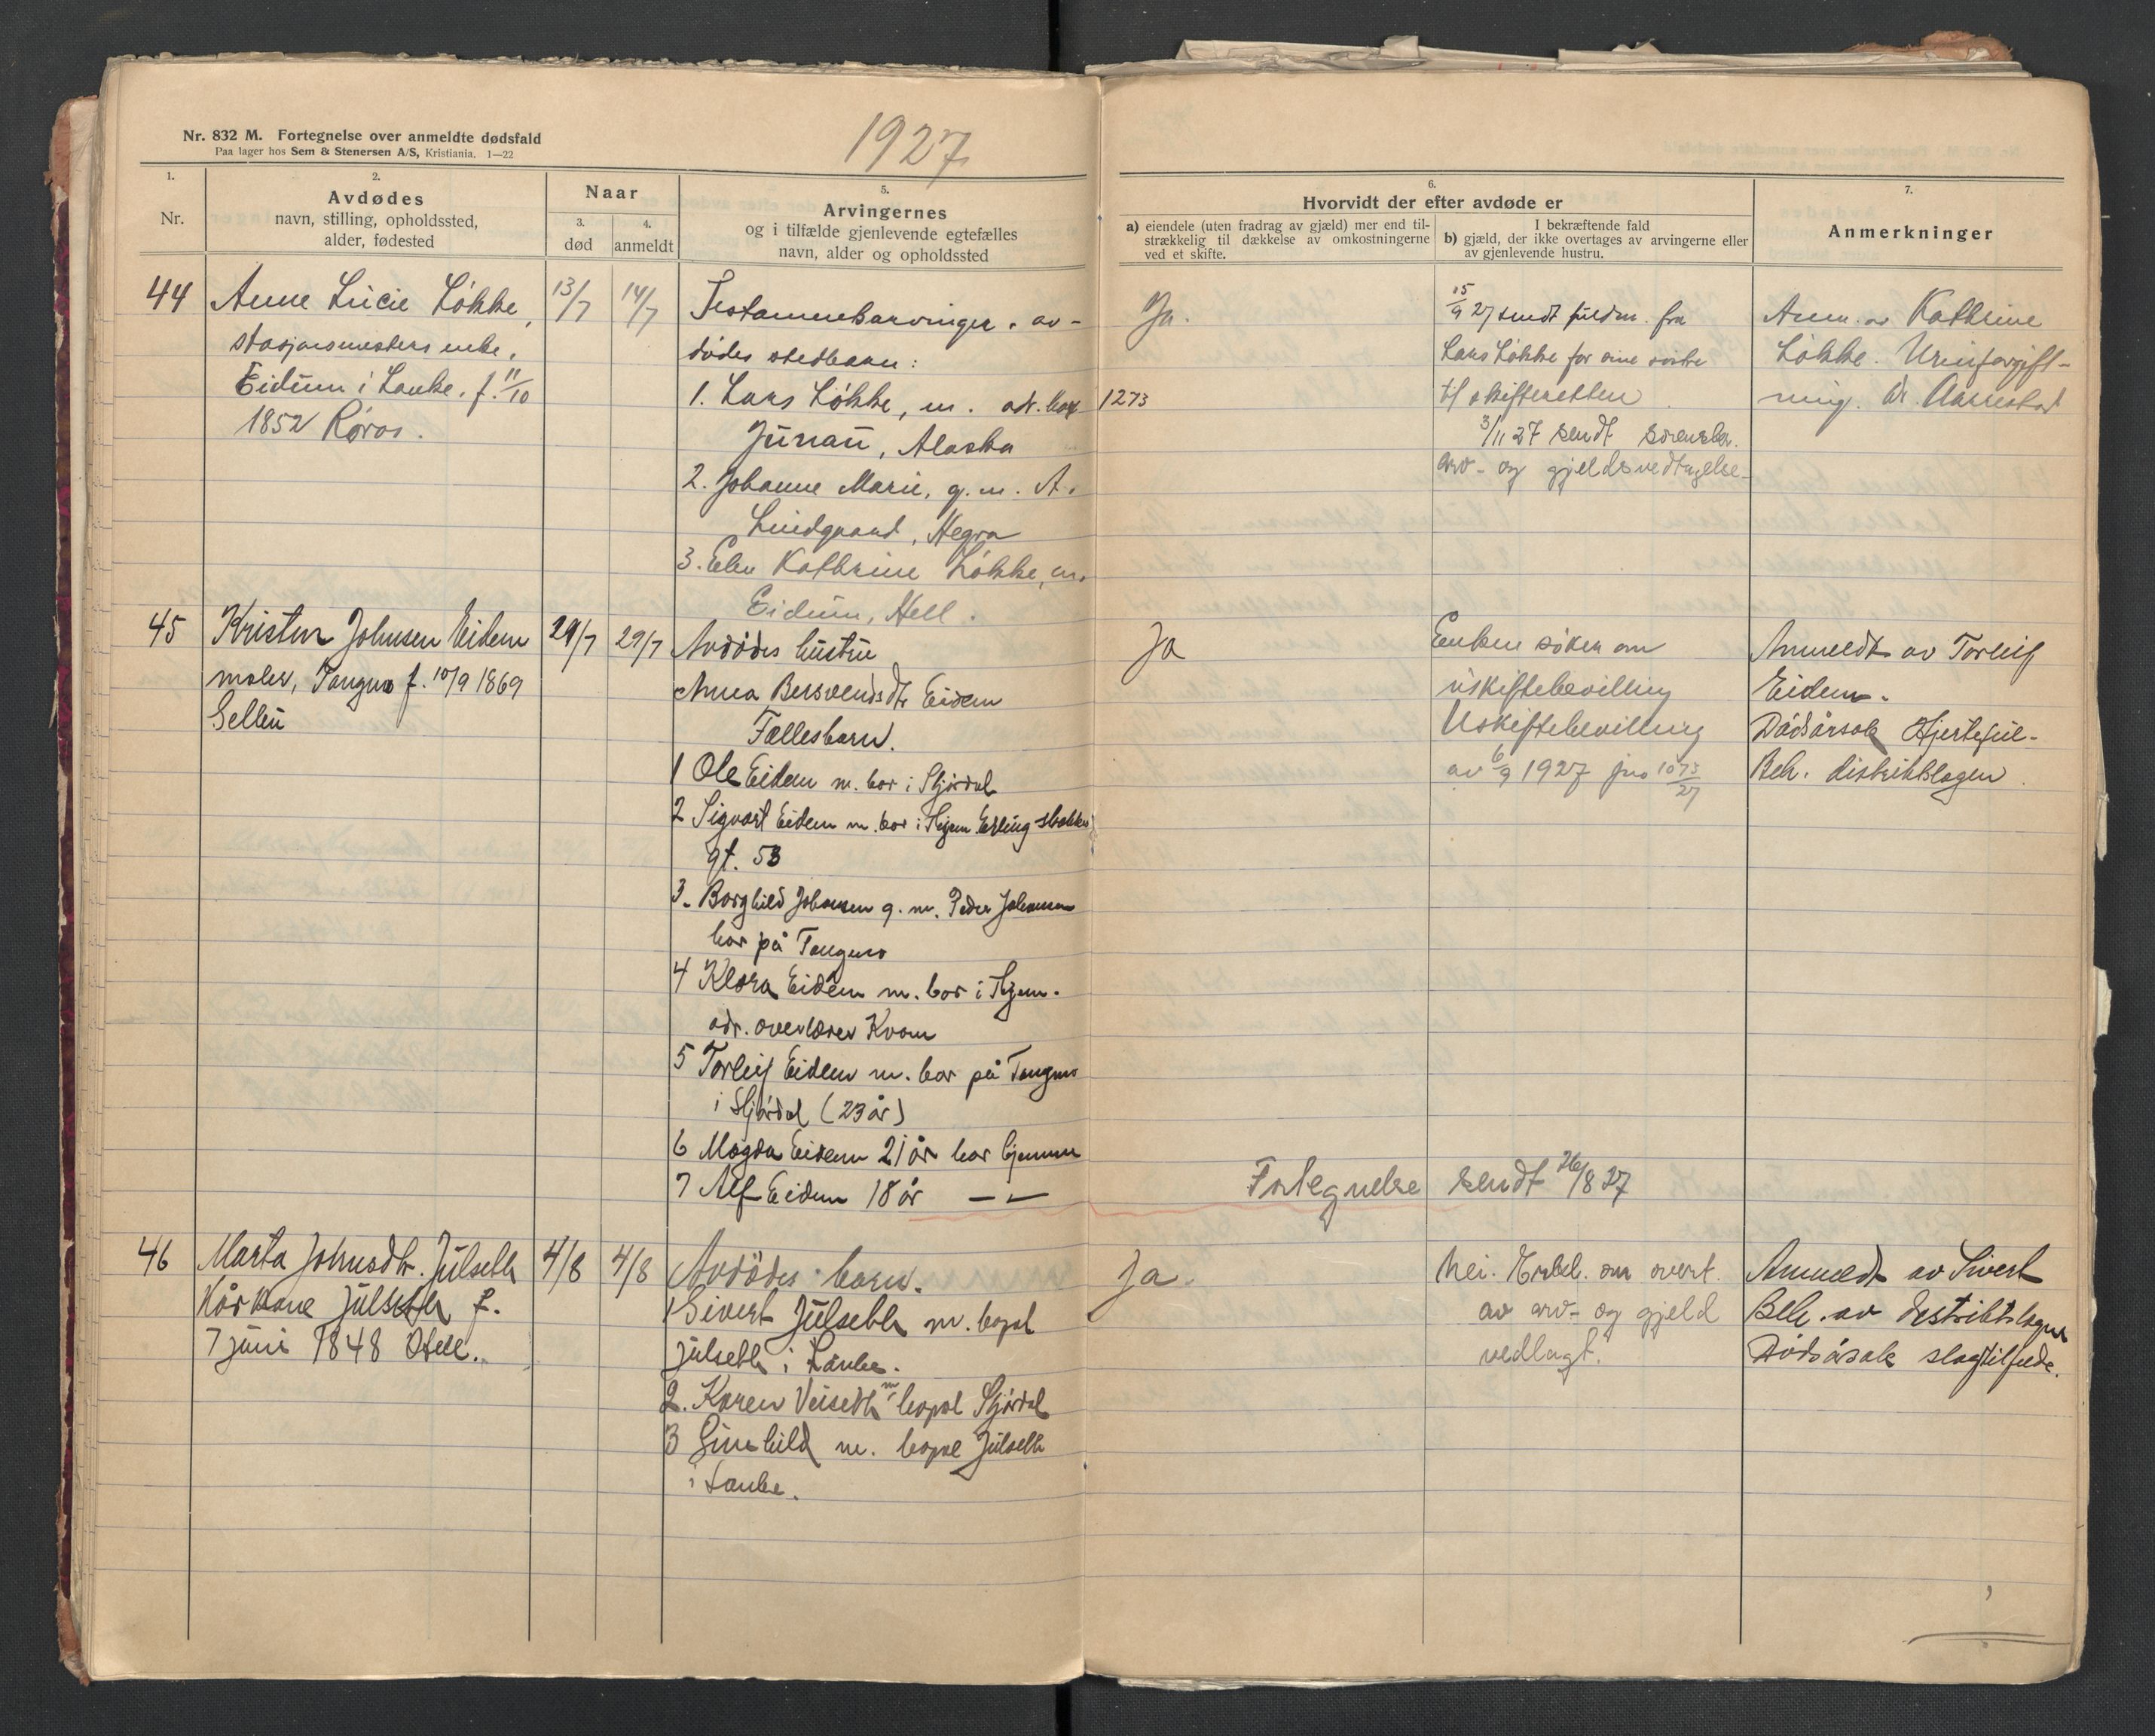 Nr. 832 M. Fortegnelse over anmeldte dødsfald
Paa lager hos Sem & Stenersen A/S, Kristiania. 1—22
1927
1.
Nr.
2.
Avdødes
navn, stilling, opholdssted,
alder, fødested
Naar
3.
død
4.
anmeldt
5.
Arvingernes
og i tilfælde gjenlevende egtefælles
navn, alder og opholdssted
6.
Hvorvidt der efter avdøde er
a) eiendele (uten fradrag av gjæld) mer end til-
strækkelig til dækkelse av omkostningerne
ved et skifte.
I bekræftende fald
b) gjæld, der ikke overtages av arvingerne eller
av gjenlevende hustru.
7.
Anmerkninger
44
Anne Lucie Løkke,
stasjonsmesters enke,
Eidum i Lånke. f. 11/10
1852 Røros.
13/7
14/7
Testamentsarvinger. av-
dødes stedbarn:
1. Lars Løkke, m. adr. box 1273
Junau, Alaska
2. Johanne Marie, g. m. A.
Lindgaard, Hegra
3. Elen Kathrine Løkke, m.
Eidum, Hell.
Ja.
15/9 27 sendt fuldm. fra
Lars Løkke for sine
til skifteretten
3/11 27 sendt sorenskr.
arv- og gjeldsvedtagelse
Anm. av Kathrine
Løkke. Urinforgift-
ning. Dr. Aarrestad
45
Kristen Johnsen Eidem
maler, Tangmo f. 10/9 1869
Selbu
29/7
29/7
Avdødes hustru
Anna Bersvendsdtr Eidem
Fællesbarn.
1 Ole Eidem m. bor i Stjørdal
2 Sigvart Eidem m. bor i Thjem Erling Skakkes
gt. 53
3. Borghild Johansen g. m. Peder Johansen
bor på Tangmo
4 Klara Eidem m. bor i Thjem.
adr. overlærer Kvam
5 Torleif Eidem m. bor på Tangmo
i Stjørdal (23 år)
6 Magda Eidem 21 år bor hjemme
7 Alf Eidem 18 år — " —
Ja
Enken søker om
uskiftebevilling
Uskiftebevilling
av 6/9 1927 jno 1073/27
Anmeldt av Torleif
Eidem.
Dødsårsak Hjertefeil.
Beh. distriktslægen.
Fortegnelse sendt 26/8 27
46
Marta Johnsdtr. Julseth
Kårkone Julseth f.
7 juni 1848
4/8
4/8
Avdødes barn.
1 Sivert Julseth m. bopæl
Julseth i Lånke.
2. Karen Veiseth m bopæl Stjørdal
3 Gunhild m. bopæl Julseth
i Lånke.
Ja.
Nei. Erkl. om overt.
av arv- og gjeld
vedlagt.
Anmeldt av Sivert
Beh. av distriktslægen
Dødsårsak slagtilfelde.